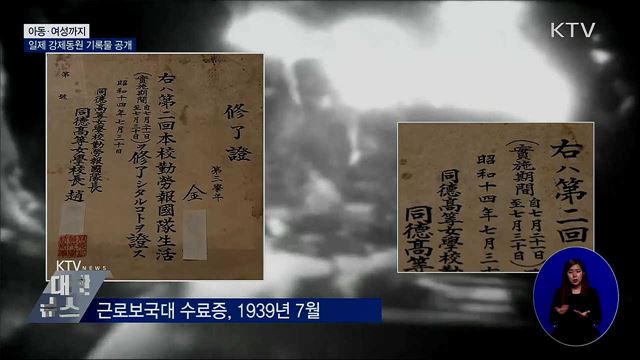 아동·여성까지
일제 강제동원 기록물 공개
KTV
修了證
第三學年
金
右ハ第二回本校勤勞報國隊生活
(實施期間 自七月二十一日 至七月三十日)ヲ修了シタルコトヲ證ス
昭和十四年七月三十日
同德高等女學校勤勞報國隊長
同德高等女學校長 趙
第 號
右ハ第二回
(實施期間 自七月二十一 至七月三十日
昭和十四年七月三
同德高等女學校勤
同德高等
KTV NEWS
대한
뉴스
근로보국대 수료증, 1939년 7월